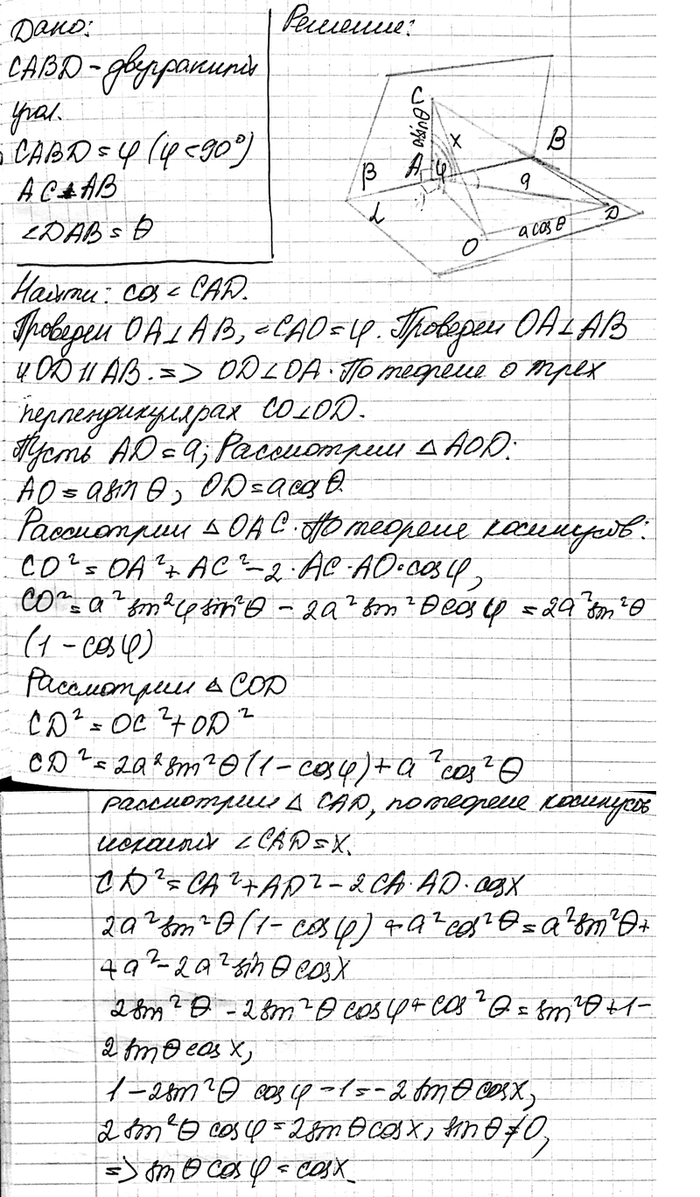 Дано:
Решение:
CABD – двугранный
угол.
CABD = φ (φ < 90°)
AC ⊥ AB
∠DAB = θ
C
a sin θ
x
B
β
A
φ
a
α
O
a cos θ
D
Найти: cos ∠ CAD.
Проведем OA ⊥ AB, ∠CAO = φ. Проведем OA ⊥ AB
и OD || AB. => OD ⊥ OA. По теореме о трех
перпендикулярах CO ⊥ OD.
Пусть AD = a; Рассмотрим △ AOD:
AO = a sin θ, OD = a cos θ.
Рассмотрим △ OAC. По теореме косинусов:
CO² = OA² + AC² – 2 · AC · AO · cos φ,
CO² = a² sin² φ sin² θ – 2a² sin² θ cos φ = 2a² sin² θ
(1 – cos φ)
Рассмотрим △ COD
CD² = OC² + OD²
CD² = 2a² sin² θ (1 – cos φ) + a² cos² θ
Рассмотрим △ CAD, по теореме косинусов
искомый ∠CAD = x.
CD² = CA² + AD² – 2 CA · AD · cos x
2a² sin² θ (1 – cos φ) + a² cos² θ = a² sin² θ +
+ a² – 2a² sin θ cos x
2 sin² θ – 2 sin² θ cos φ + cos² θ = sin² θ + 1 –
2 sin θ cos x,
1 – 2 sin² θ cos φ – 1 = – 2 sin θ cos x,
2 sin² θ cos φ = 2 sin θ cos x, sin θ ≠ 0,
=> sin θ cos φ = cos x